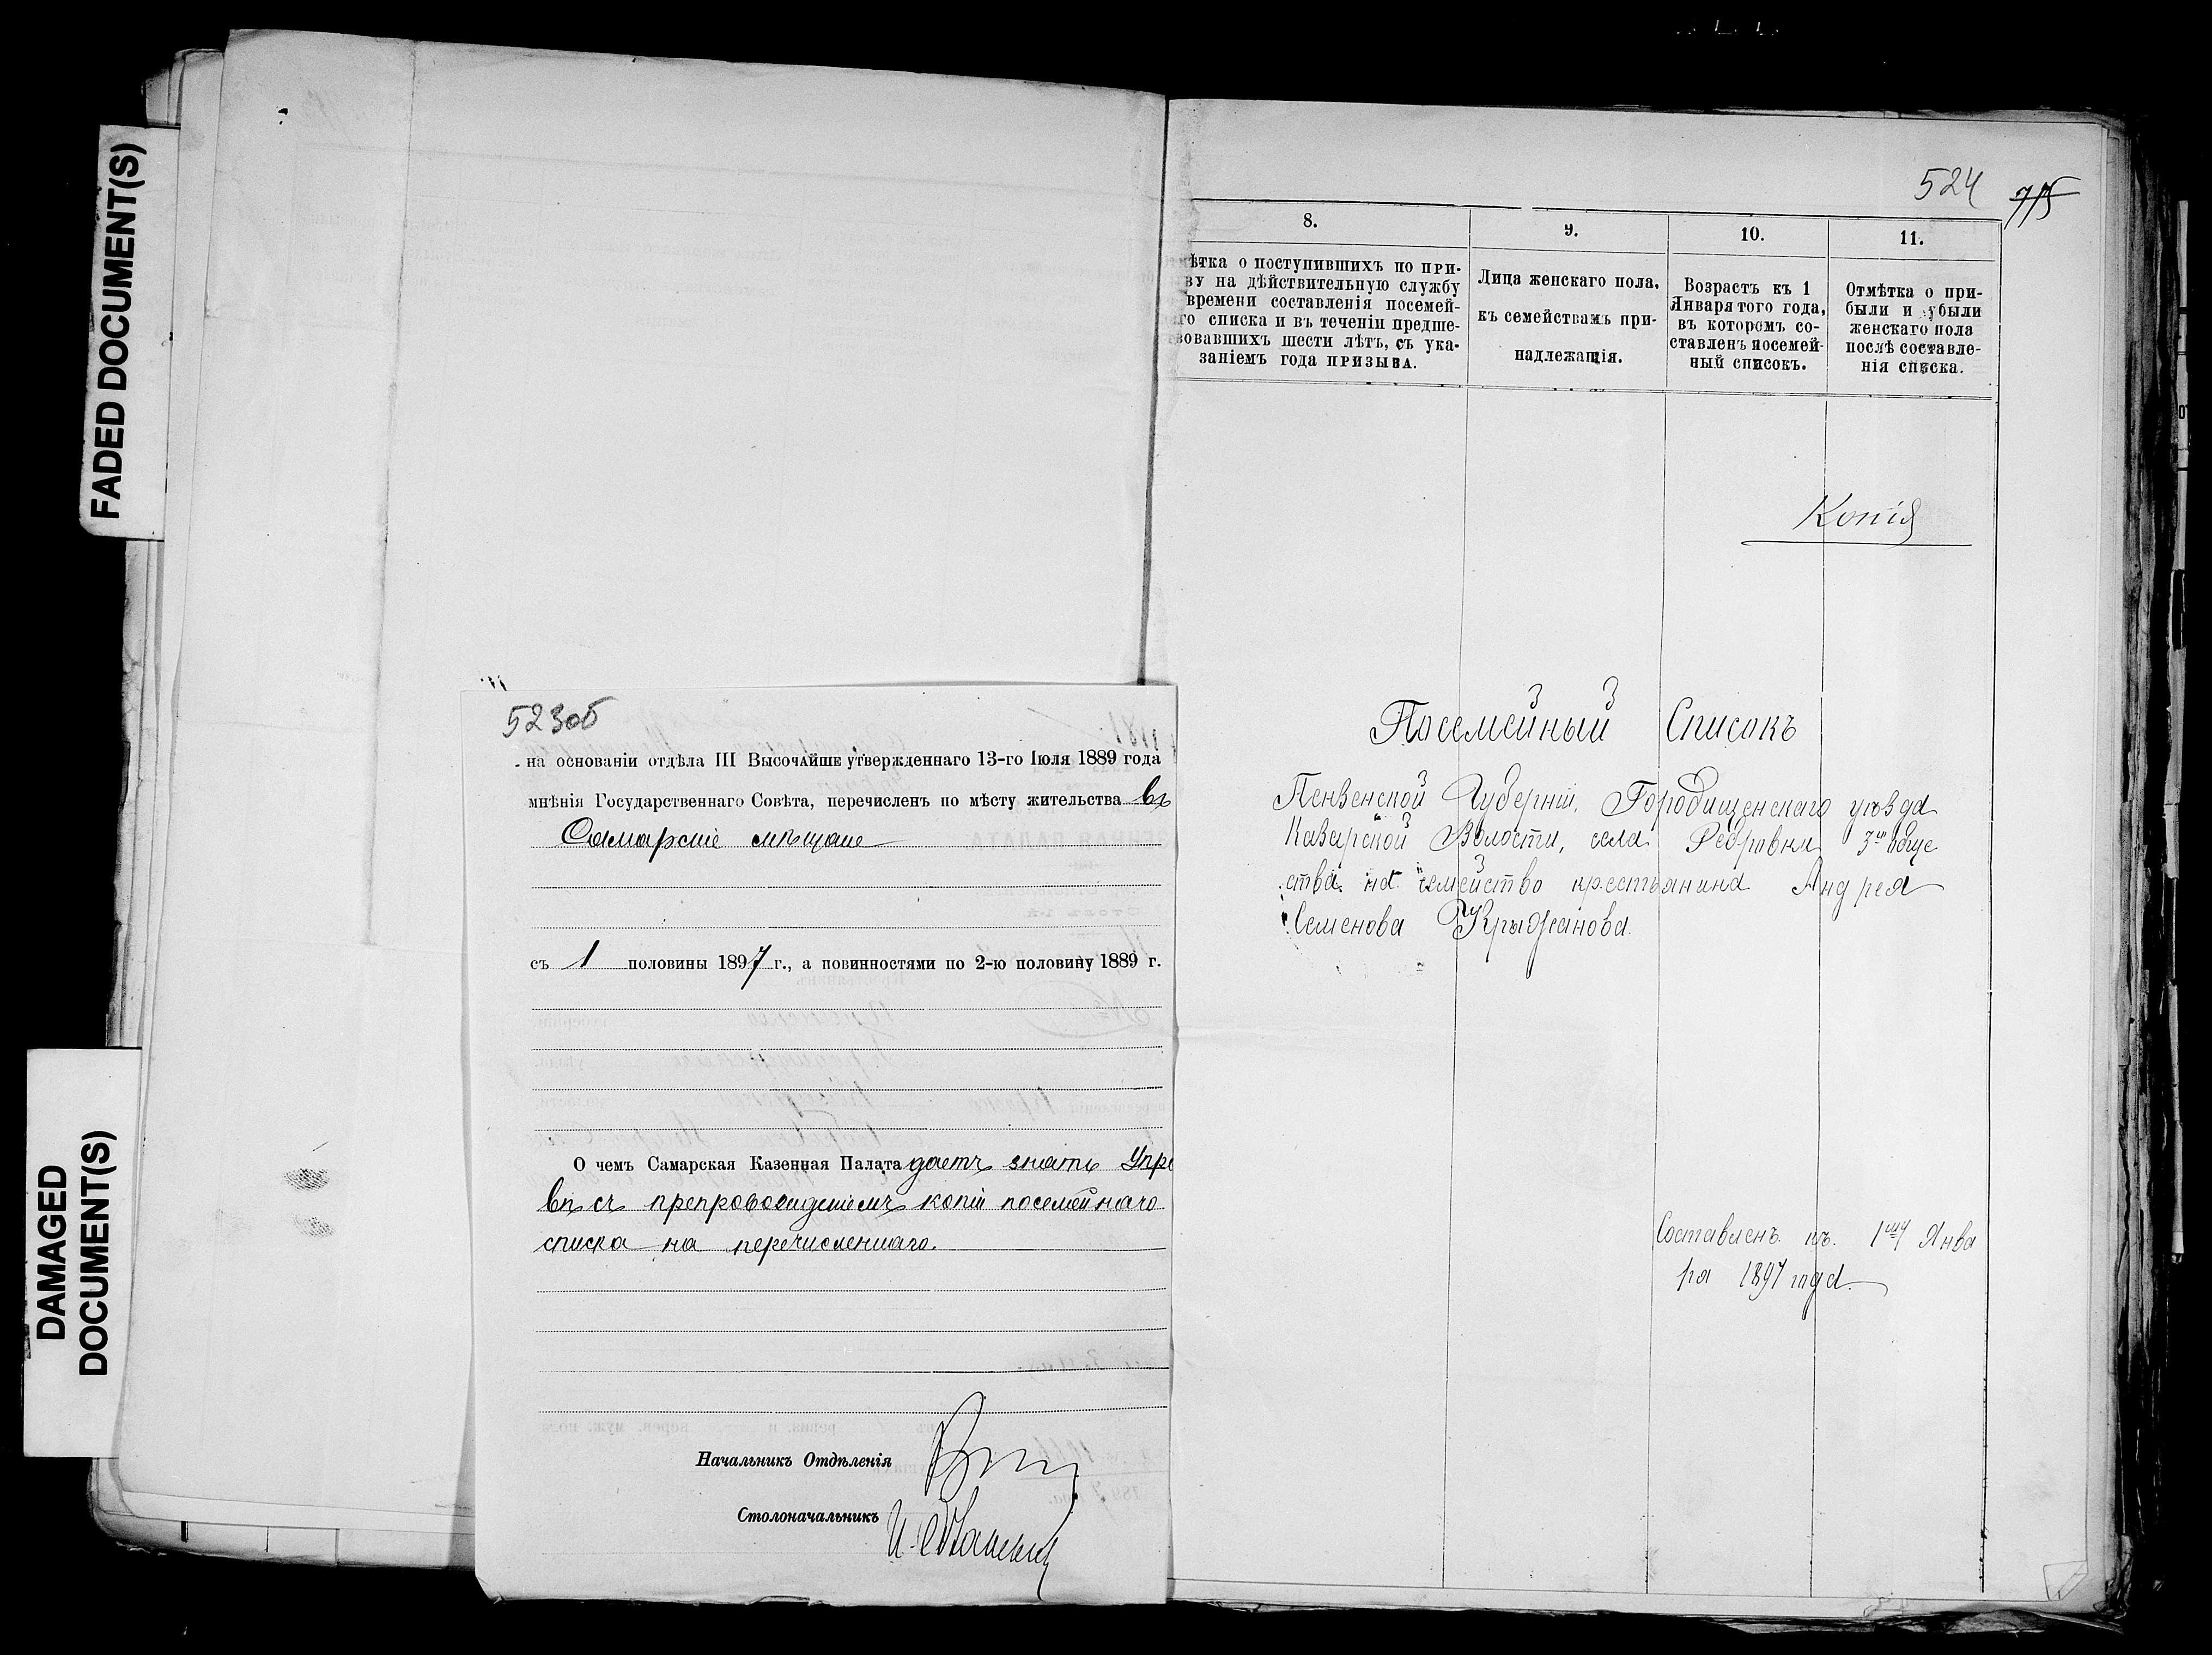 FADED DOCUMENT(S)
DAMAGED
DOCUMENT(S)
523об
на основаніи отдѣла III Высочайше утвержденнаго 13-го Іюля 1889 года
мнѣнія Государственнаго Совѣта, перечисленъ по мѣсту жительства въ
Самарскіе мѣщане
съ 1 половины 1897 г., а повинностями по 2-ю половину 1889 г.
О чемъ Самарская Казенная Палата даетъ знать Упра
вѣ съ препровожденіемъ копіи посемейнаго
списка на перечисленнаго.
Начальникъ Отдѣленія
Столоначальникъ
524
8.
9.
10.
11.
ѣтка о поступившихъ по при-
ву на дѣйствительную службу
времени составленія посемей-
го списка и въ теченіи предше-
вовавшихъ шести лѣтъ, съ ука-
заніемъ года призыва.
Лица женскаго пола,
къ семействамъ при-
надлежащія.
Возрастъ къ 1
Января того года,
въ которомъ со-
ставленъ посемей-
ный списокъ.
Отмѣтка о при-
были и убыли
женскаго пола
послѣ составле-
нія списка.
Копія
Посемейный Списокъ
Пензенской Губерніи, Городищенскаго уѣзда
Казарской Волости, села 3го обще
ства на семейство крестьянина Андрея
Семенова Крыжанова.
Составленъ къ 1му Янва
ря 1897 года.